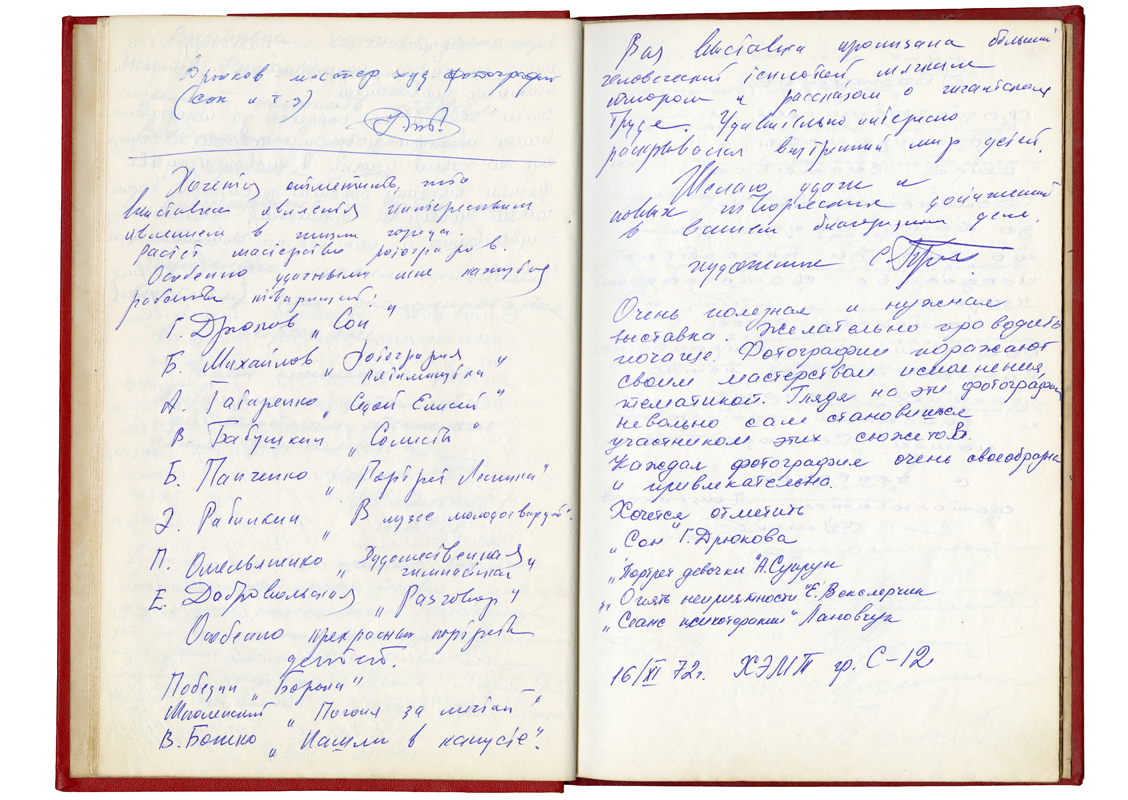 Брюков мастер худ фотографии
(Сон и т э)
Хочется отметить, что
выставка является интересным
явлением в жизни города.
Растёт мастерство фотографов.
Особенно удачными мне кажутся
работы товарищей:
Г. Дрюков „Сон"
Б. Михайлов „Фотография
Пятиминутка"
А. Татаренко „Седой Енисей"
В. Бабушкин „Солисты"
Б. Панченко „Портрет Ленина"
Э. Рабинкин „В музее молодогвард."
П. Омельяненко „Художественная
гимнастика"
Е. Добровольская „Разговор"
Особенно прекрасны портреты
детей.
Победин „Борона"
Школенский „Погоня за мечтой"
В. Бошко „Нашли в капусте".
Вся выставка пронизана большой
человеческой теплотой, мягким
юмором и рассказом о гигантском
труде. Удивительно интересно
раскрывался внутренний мир детей.
Желаю удачи и
новых творческих достижений
в вашем благородном деле.
художник
Очень полезная и нужная
выставка. Желательно проводить
почаще. Фотографии поражают
своим мастерством исполнения,
тематикой. Глядя на эти фотографии
невольно сам становишься
участником этих сюжетов.
Каждая фотография очень своеобразна
и привлекательна.
Хочется отметить
„Сон" Г. Дрюкова
„Портрет девочки" А. Супрун
„Опять неприятности" Е. Векслерчик
„Сеанс психотерапии" Лановчук
16/XI 72г. ХЭМТ гр. С-12